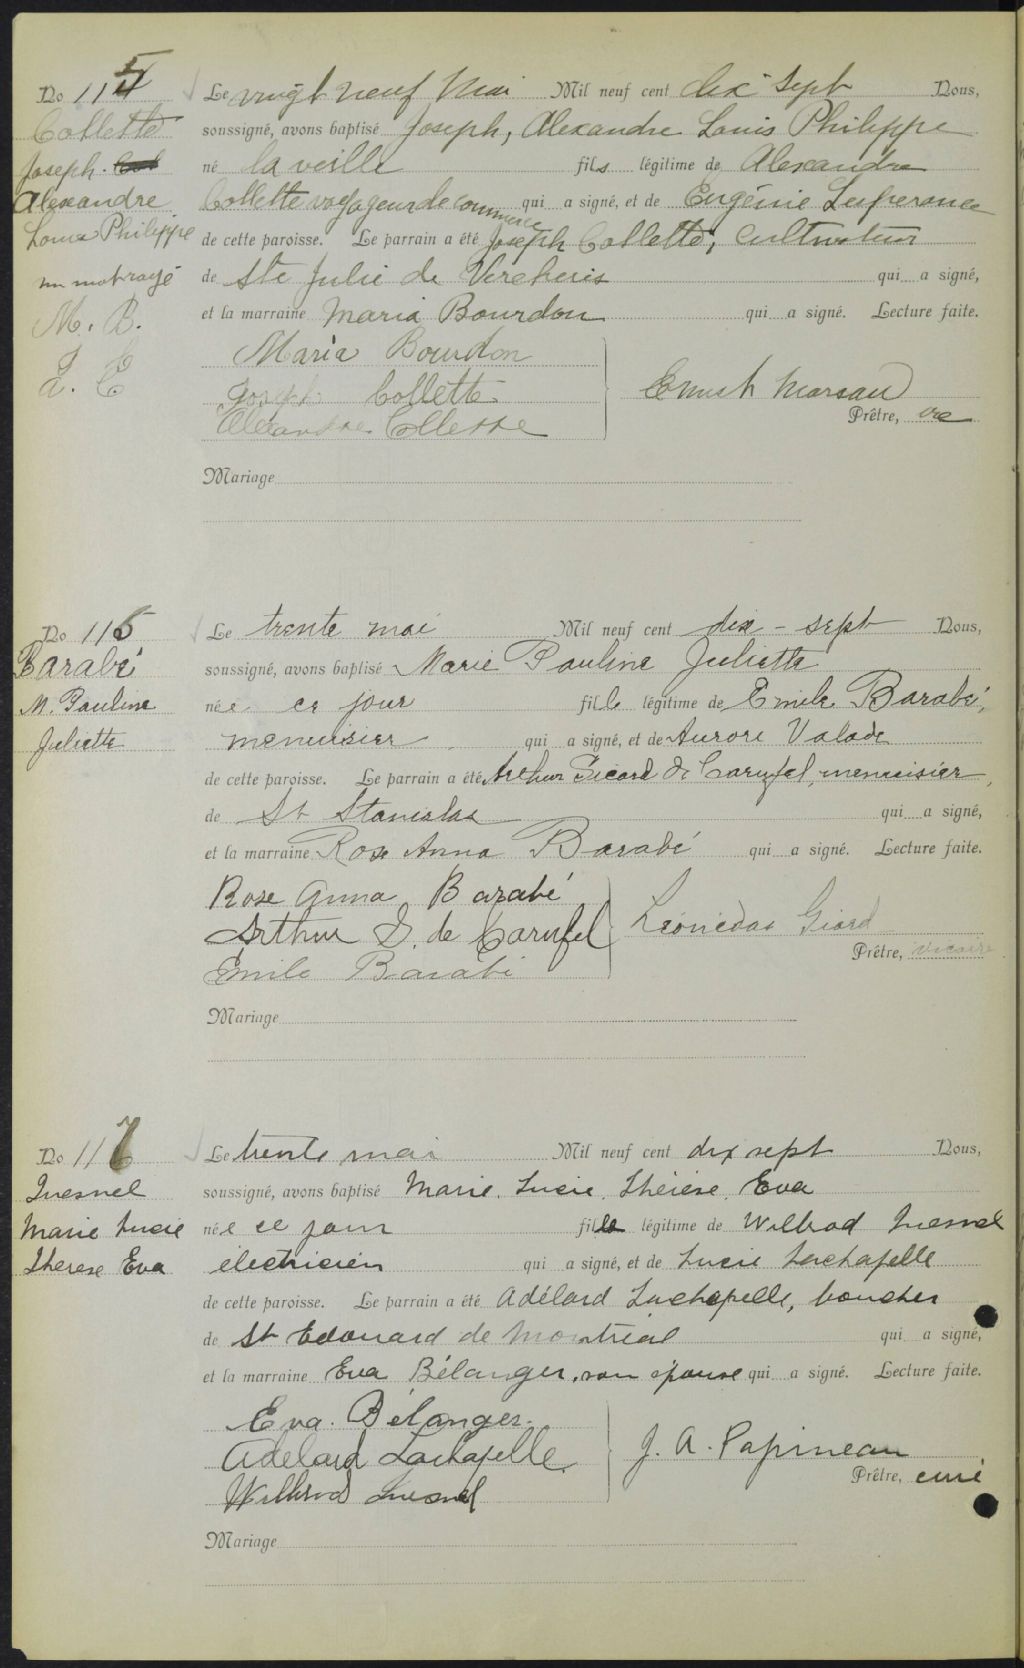 No 115
Collette
Joseph
Alexandre
Louis Philippe
un mot rayé
M. B.
J. C
Le vingt neuf Mai Mil neuf cent dix sept Nous,
soussigné, avons baptisé Joseph, Alexandre Louis Philippe
né la veille fils légitime de Alexandre
Collette voyageur de commerce qui a signé, et de Eugénie Lesperance
de cette paroisse. Le parrain a été Joseph Collette, Cultivateur
de Ste Julie de Vercheres qui a signé,
et la marraine Maria Bourdon qui a signé. Lecture faite.
Maria Bourdon
Joseph Collette
Alexandre Collette
Marsau
Prêtre, vre
Mariage
No 116
Barabé
M. Pauline
Juliette
Le trente mai Mil neuf cent dix-sept Nous,
soussigné, avons baptisé Marie Pauline Juliette
née ce jour fille légitime de Emile Barabé,
menuisier qui a signé, et de Aurore Valade
de cette paroisse. Le parrain a été Arthur Sicard de Carufel, menuisier,
de St Stanislas qui a signé,
et la marraine Rose Anna Barabé qui a signé. Lecture faite.
Rose Anna Barabé
Arthur S. de Carufel
Emile Barabé
Léonidas Giard
Prêtre, vicaire
Mariage
No 117
Quesnel
Marie Lucie
Therese Eva
Le trente mai Mil neuf cent dix sept Nous,
soussigné, avons baptisé Marie, Lucie, Thérèse, Eva
née ce jour fille légitime de Wilbrod Quesnel
électricien qui a signé, et de Lucie Lachapelle
de cette paroisse. Le parrain a été Adélard Lachapelle, boucher
de St Edouard de Montréal qui a signé,
et la marraine Eva Bélanger, son épouse qui a signé. Lecture faite.
Eva Bélanger
Adelard Lachapelle
Wilbrod Quesnel
J. A. Papineau
Prêtre, curé
Mariage